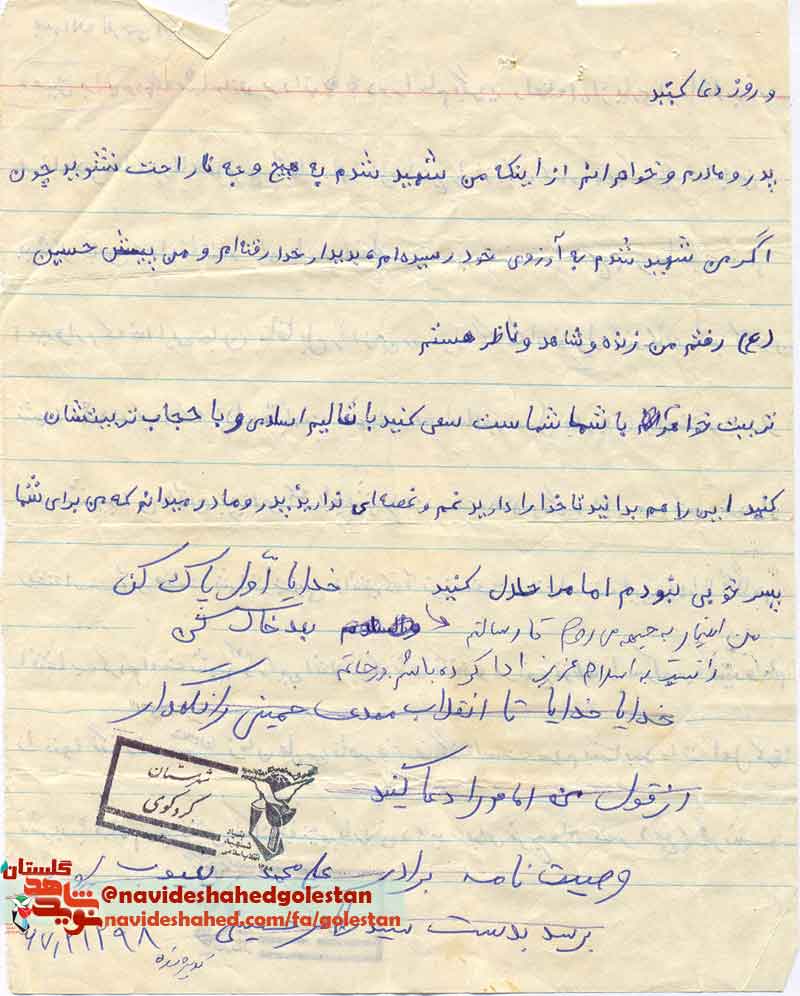 و روز دعا کنید
پدر و مادرم و خواهرانم از اینکه من شهید شدم به هیچ وجه ناراحت نشنوید چون
اگر من شهید شدم به آرزوی خود رسیده ام، بدیدار خدا رفته ام و من پیش حسین
(ع) رفتم من زنده و شاهد و ناظر هستم
تربیت با شما شماست سعی کنید با تعالیم اسلامی و با حجاب تربیتشان
کنید این را هم بدانید تا خدا را دارید غم و غصه ای ندارید پدر و مادر میدانم که من برای شما
پسر خوبی نبودم اما مرا حلال کنید خدایا اول پاک کن
بعد خاک کن
من اینبار به جبهه می روم تا رسالتم
را نسبت به اسلام عزیز ادا کرده باشم در خاتمه
خدایا خدایا تا انقلاب مهدی خمینی را نگهدار
از قول من امام را دعا کنید
شهرستان
کردکوی
بنیاد
شهید
انقلاب اسلامی
وصیت نامه برادر علی محمد
برسد بدست سید
نوید شاهد گلستان
@navideshahedgolestan
navideshahed.com/fa/golestan